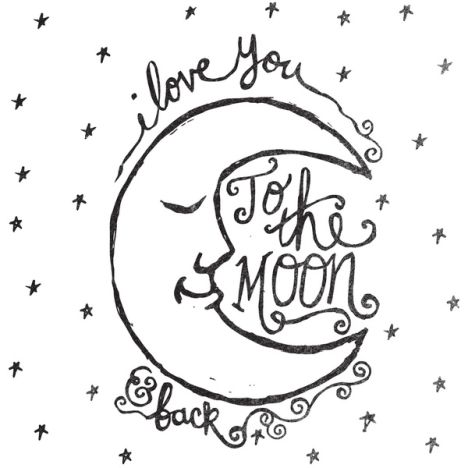 i love You
To
the
Moon
& back